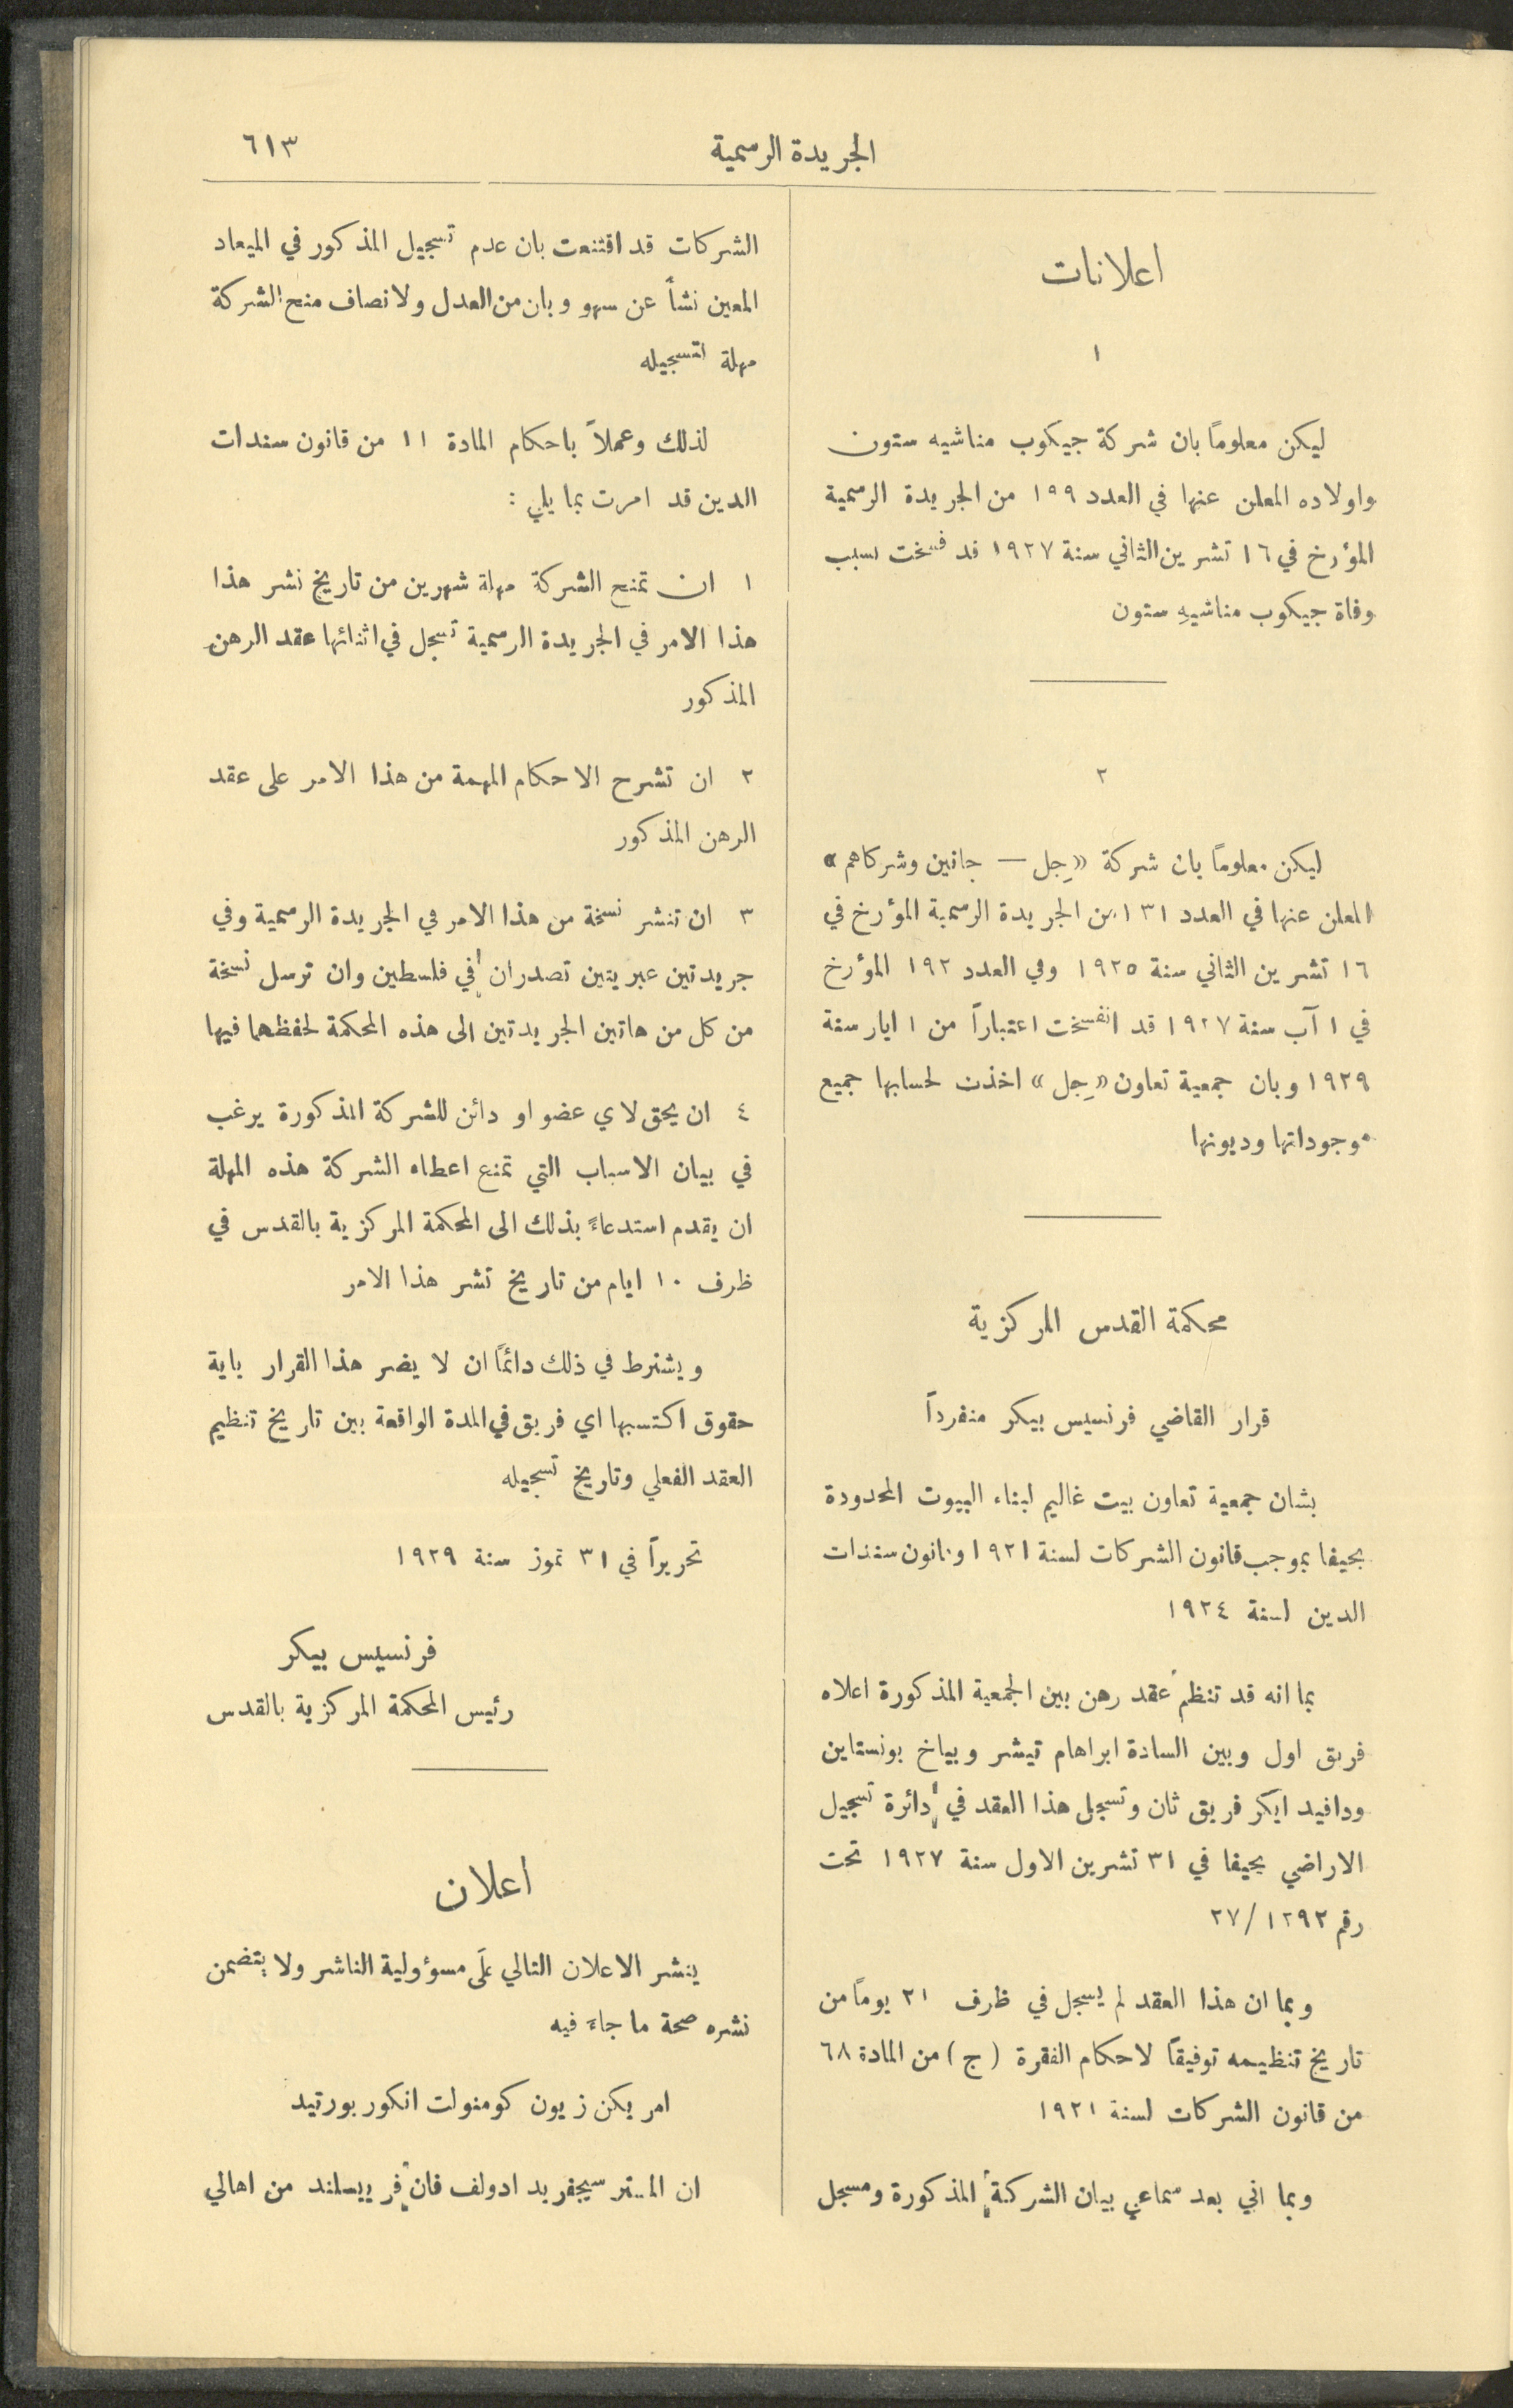 الجريدة الرسمية
٦١٣
اعلانات
١
ليكن معلوماً بان شركة جيكوب مناشيه ستون
واولاده المعلن عنها في العدد ١٩٩ من الجريدة الرسمية
المؤرخ في ١٦ تشرين الثاني سنة ١٩٢٧ قد فسخت لسبب
وفاة جيكوب مناشيهِ ستون
٢
ليكن معلوماً بان شركة «جِل — جانين وشركاهم»
المعلن عنها في العدد ١٣١ من الجريدة الرسمية المؤرخ في
١٦ تشرين الثاني سنة ١٩٢٥ وفي العدد ١٩٢ المؤرخ
في ١ آب سنة ١٩٢٧ قد انفسخت اعتباراً من ١ ايار سنة
١٩٢٩ وبان جمعية تعاون «جِل» اخذت لحسابها جميع
موجوداتها وديونها
محكمة القدس المركزية
قرار القاضي فرنسيس بيكر منفرداً
بشان جمعية تعاون بيت غاليم لبناء البيوت المحدودة
بحيفا بموجب قانون الشركات لسنة ١٩٢١ وقانون سندات
الدين لسنة ١٩٢٤
بما انه قد تنظم عقد رهن بين الجمعية المذكورة اعلاه
فريق اول وبين السادة ابراهام تيشر وبياخ بونستاين
ودافيد ايكر فريق ثان وتسجل هذا العقد في دائرة تسجيل
الاراضي بحيفا في ٣١ تشرين الاول سنة ١٩٢٧ تحت
رقم ١٢٩٢/٢٧
وبما ان هذا العقد لم يسجل في ظرف ٢١ يوماً من
تاريخ تنظيمه توفيقاً لاحكام الفقرة (ج) من المادة ٦٨
من قانون الشركات لسنة ١٩٢١
وبما اني بعد سماعي بيان الشركة المذكورة ومسجل
الشركات قد اقتنعت بان عدم تسجيل المذكور في الميعاد
المعين نشأ عن سهو وبان من العدل ولانصاف منح الشركة
مهلة لتسجيله
لذلك وعملاً باحكام المادة ١١ من قانون سندات
الدين قد امرت بما يلي :
١ ان تمنح الشركة مهلة شهرين من تاريخ نشر هذا
هذا الامر في الجريدة الرسمية تسجل في اثنائها عقد الرهن
المذكور
٢ ان تشرح الاحكام المهمة من هذا الامر على عقد
الرهن المذكور
٣ ان تنشر نسخة من هذا الامر في الجريدة الرسمية وفي
جريدتين عبريتين تصدران في فلسطين وان ترسل نسخة
من كل من هاتين الجريدتين الى هذه المحكمة لحفظهما فيها
٤ ان يحق لاي عضو او دائن للشركة المذكورة يرغب
في بيان الاسباب التي تمنع اعطاء الشركة هذه المهلة
ان يقدم استدعاءً بذلك الى المحكمة المركزية بالقدس في
ظرف ١٠ ايام من تاريخ نشر هذا الامر
ويشترط في ذلك دائماً ان لا يضر هذا القرار باية
حقوق اكتسبها اي فريق في المدة الواقعة بين تاريخ تنظيم
العقد الفعلي وتاريخ تسجيله
تحريراً في ٣١ تموز سنة ١٩٢٩
فرنسيس بيكر
رئيس المحكمة المركزية بالقدس
اعلان
ينشر الاعلان التالي على مسوؤلية الناشر ولا يتضمن
نشره صحة ما جاء فيه
امريكن زيون كومنولت انكوربورتيد
ان المستر سيجفريد ادولف فان فرييسلند من اهالي